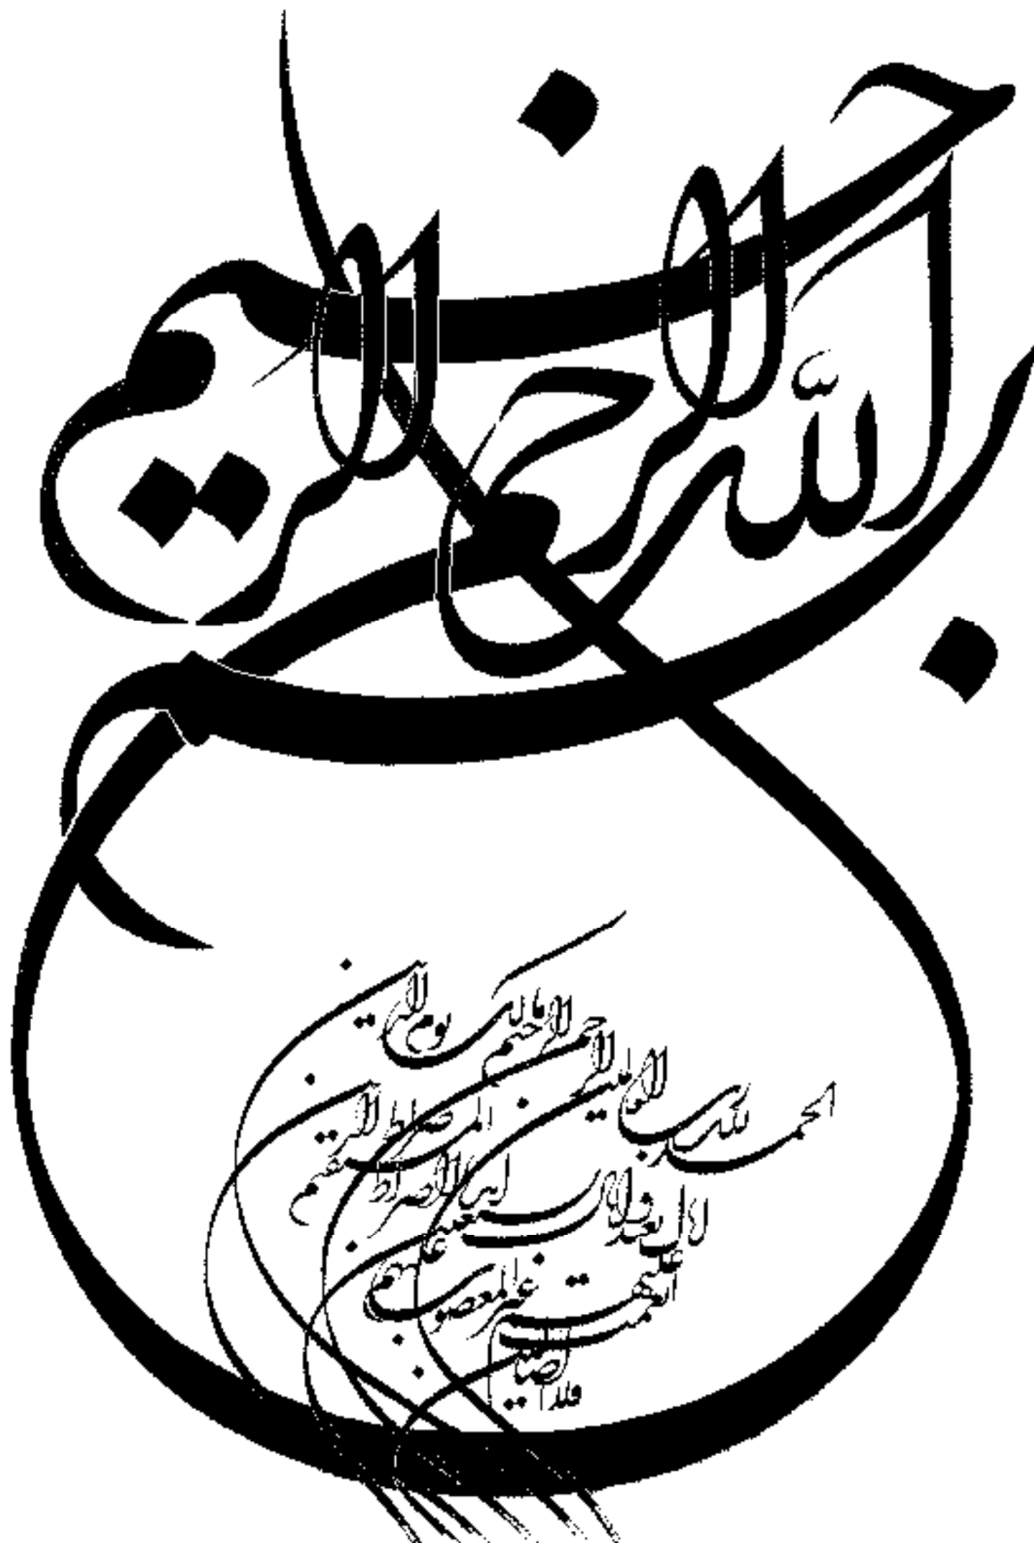 بسم الله الرحمن الرحيم
الحمد لله رب العالمين الرحمن
الرحيم مالك يوم الدين
اياك نعبد و اياك نستعين
اهدنا الصراط المستقيم
صراط الذين
انعمت عليهم
غير المغضوب عليهم
ولا الضالين